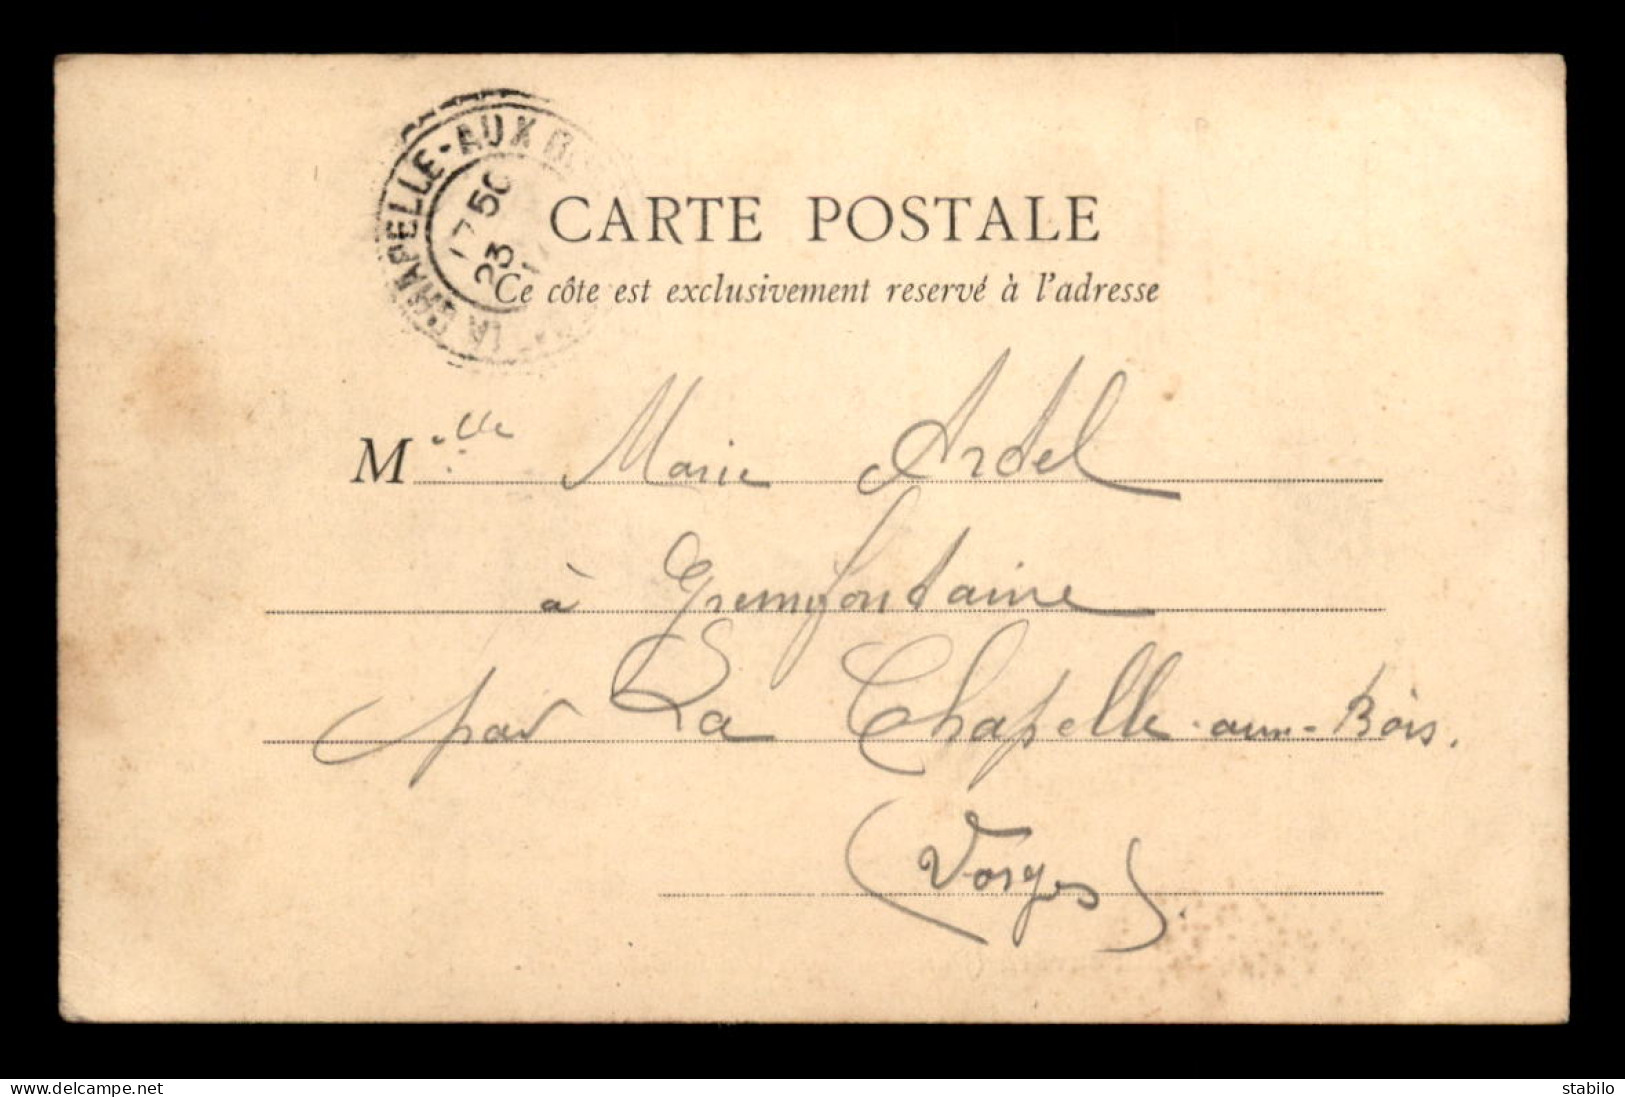 LA CHAPELLE-AUX
17 50
23
CARTE POSTALE
Ce côte est exclusivement reservé à l'adresse
Melle Marie Ardel
à Gremifontaine
par La Chapelle-aux-Bois.
(Vosges).
delcampe.net
stabilo